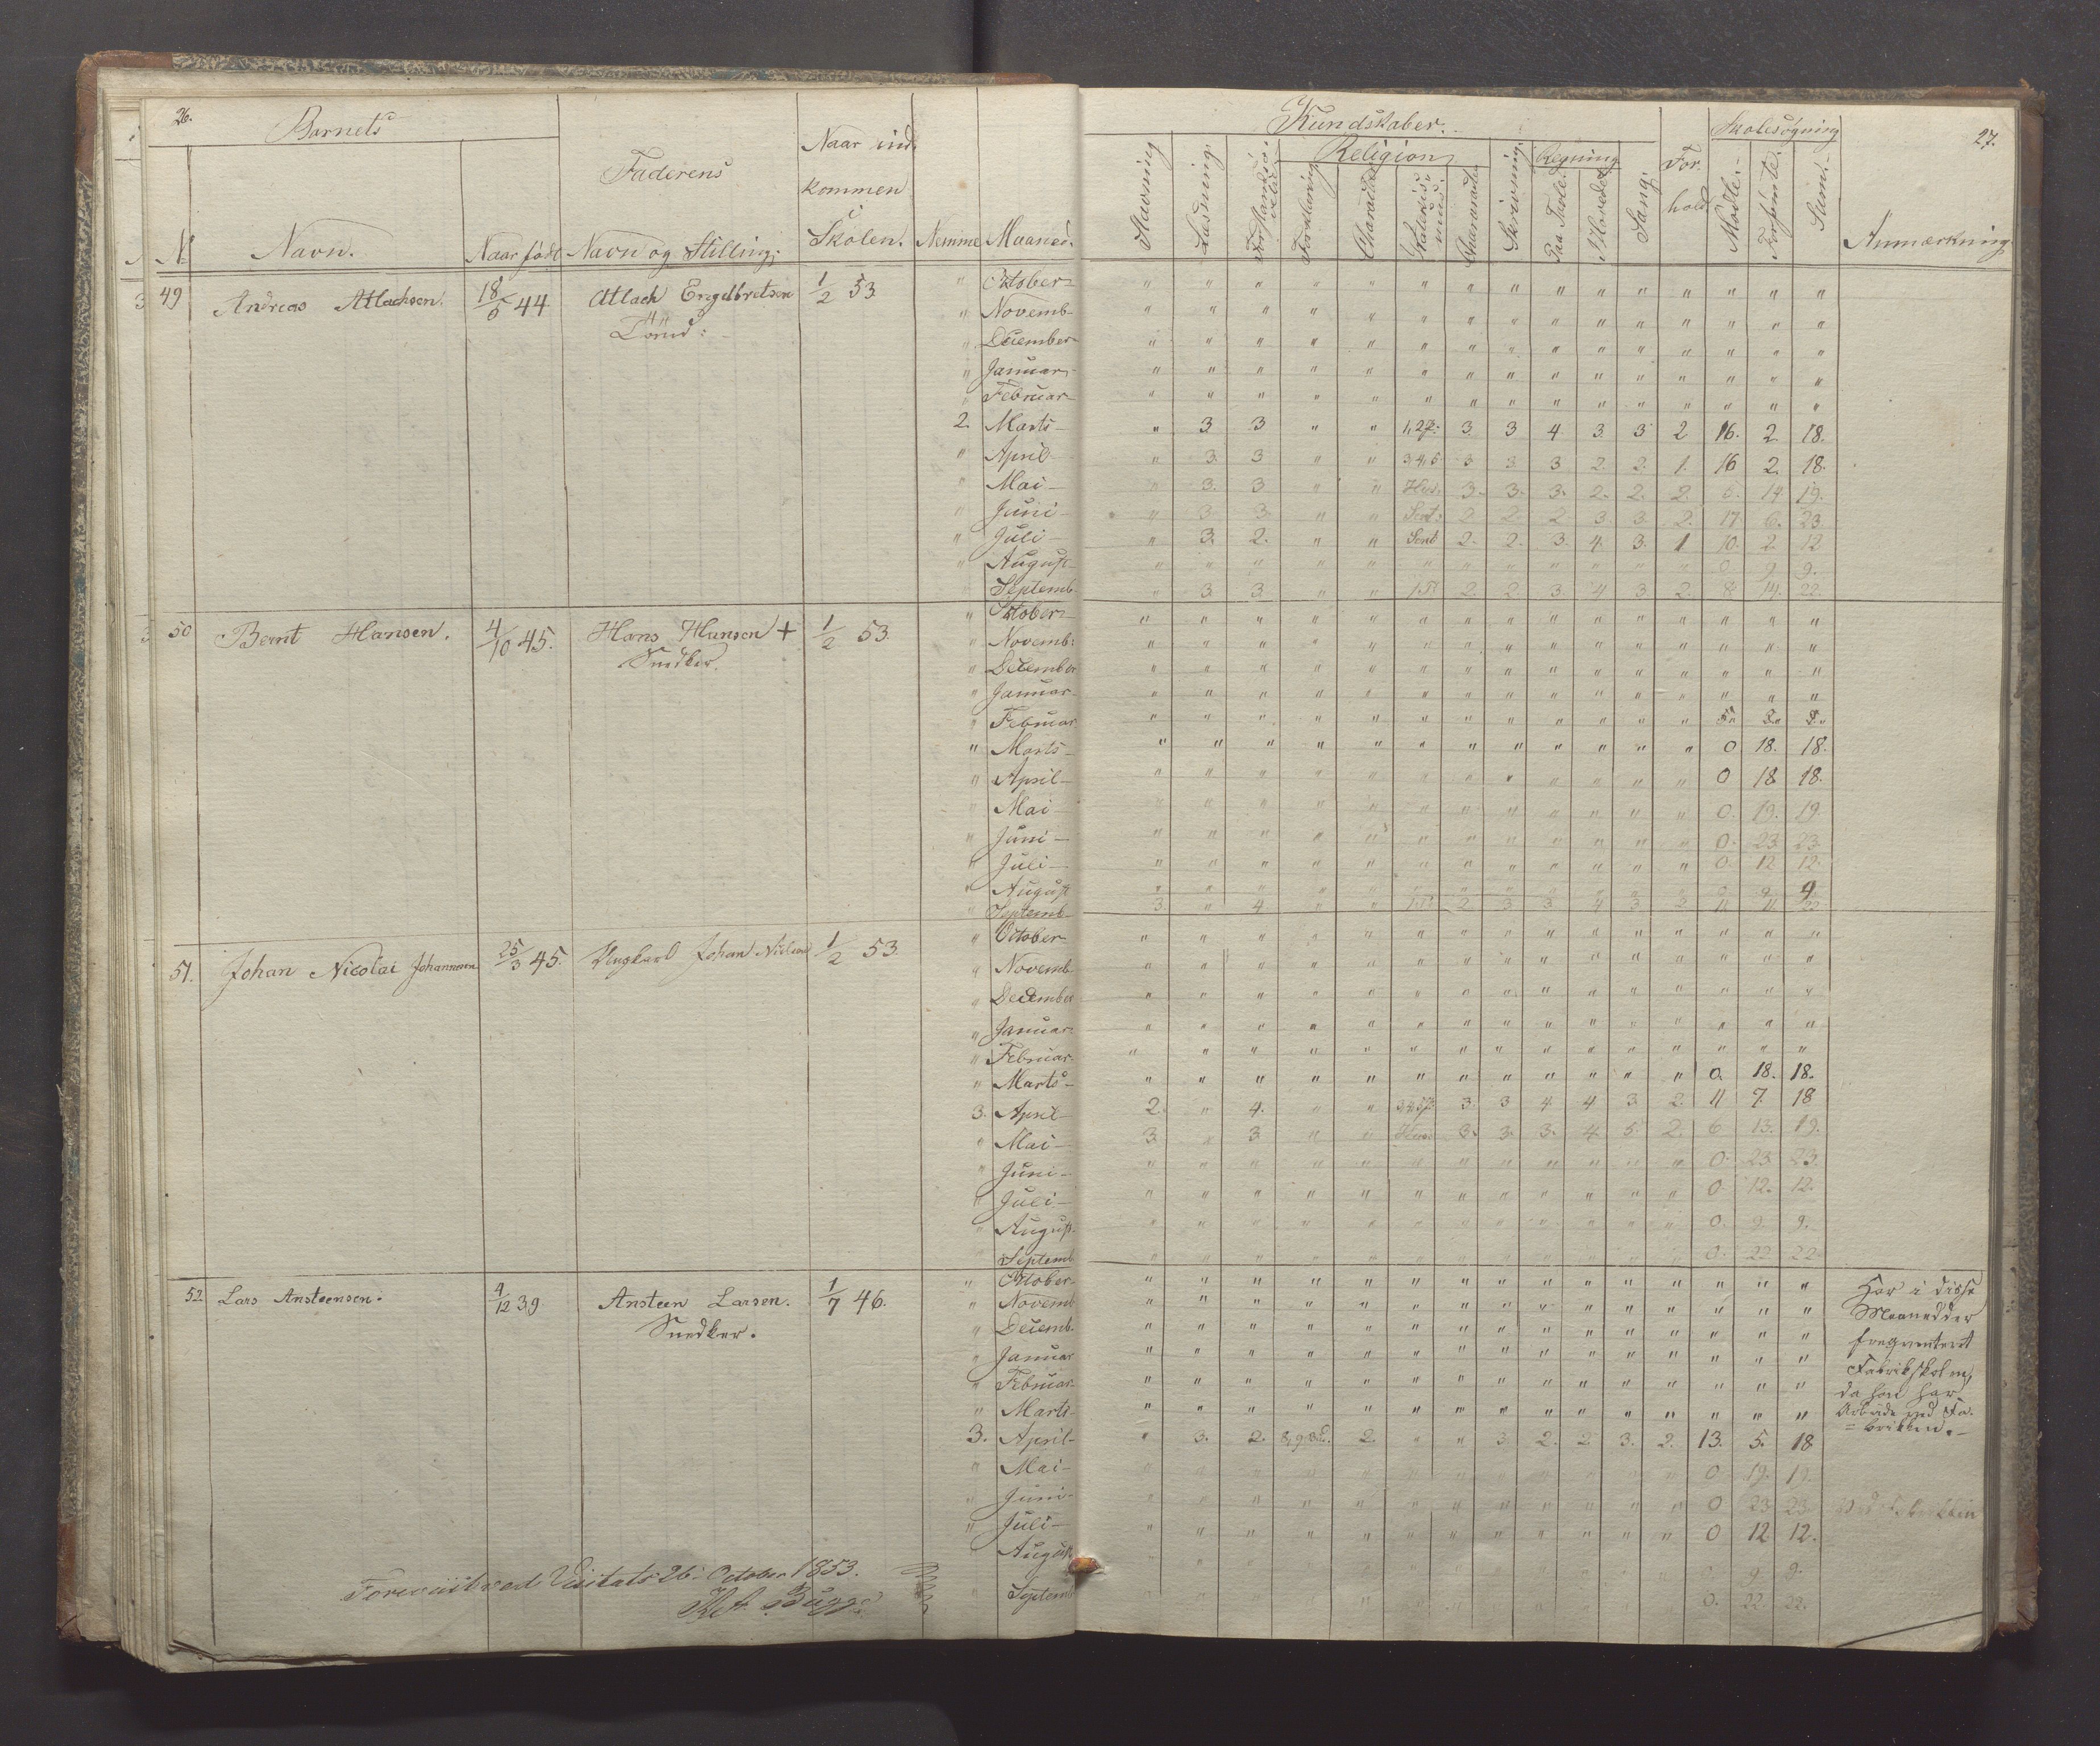 26.
Barnets
Faderens
Naar ind
kommen
Skolen.
Nr Navn. Naar født Navn og Stilling. Nemme Maaned.
Kundskaber.
Religion
Regning
For
hold
Skolesøgning
27.
Stavning Læsning. Forklaring Charakter Skrivning. Paa Tavle. I Hovedet Sang. Mødte. Forsømte. Sum. Anmærkning
49 Andreas Atlachsen. 18/5 44 Atlach Engelbretsen 1/2 53 " October " " " " " " " " " " " " " " "
" Novemb. " " " " " " " " " " " " " " "
" December " " " " " " " " " " " " " " "
" Januar " " " " " " " " " " " " " " "
" Februar " " " " " " " " " " " " " " "
2. Marts " 3 3 " " 3 3 4 3 3 2 16. 2. 18.
" April " 3. 3 " " 3,4,5 3 3 3 2. 2. 1. 16 2. 18.
" Mai " 3. 3 " " Hus. 3. 3. 3. 2. 2. 2. 14 19.
" Juni " 3 3 " " 2 2 2 3 3 2. 17 6. 23
" Juli " 3. 2. " " 2. 2. 3. 4. 3. 1 10. 2 12
" August " " " " " " " " " " " " 0 9. 9.
" Septemb. " 3 3 " " 2 2 3. 4 3 2. 8 14. 22
50 Bernt Hansen. 4/10 45. Hans Hansen + 1/2 53. " October " " " " " " " " " " " " " " "
Snedker.
" Novemb: " " " " " " " " " " " " " " "
" December " " " " " " " " " " " " " " "
" Januar " " " " " " " " " " " " " " "
" Februar " " " " " " " " " " " "
" Marts " " " " " " " " " " " " 0 18. 18.
" April " " " " " " " " " " " " 0 18 18.
" Mai " " " " " " " " " " " " 0. 19. 19
" Juni " " " " " " " " " " " " 0. 23 23
" Juli " " " " " " " " " " " " 0. 12 12.
" August " " " " " " " " " " " " 0 9. 9.
" Septemb. 3. " 4. " " 2 3. 3 4 3 2 11 11 22
51. Johan Nicolai Johannesen 25/3 45. Ungkarl Johan Nielsen 1/2 53. " October " " " " " " " " " " " " " " "
" Novemb " " " " " " " " " " " " " " "
" December " " " " " " " " " " " " " " "
" Januar " " " " " " " " " " " " " " "
" Februar " " " " " " " " " " " " " " "
" Marts " " " " " " " " " " " " 0. 18. 18.
3. April 2. " 4. " " 3. 3 4 4 3 2. 11 7. 18
" Mai 3. " 3 " " Hus. 3. 3. 3. 4. 5 2. 6 13. 19.
" Juni " " " " " " " " " " " " 0. 23 23.
" Juli " " " " " " " " " " " " 0. 12. 12.
" August. " " " " " " " " " " " " 0. 9. 9.
Septemb " " " " " " " " " " " " 0. 22 22
52. Lars Ansteensen. 4/12 39. Ansteen Larsen. 1/7 46. " October " " " " " " " " " " " " " " " Har i disse
Snedker.
" Novemb " " " " " " " " " " " " " " " Maanedder
" Decemb. " " " " " " " " " " " " " " " freqventeret
" Januar " " " " " " " " " " " " " " " Fabrikskolen,
" Februar " " " " " " " " " " " " " " " da han har
" Marts " " " " " " " " " " " " " " " Arbeide ved Fa-
3. April " 3. 2. 2. " " 3 2. 2 3. 2. 13. 5. 18 =brikken.
" Mai " " " " " " " " " " " " 0 19. 19.
" Juni " " " " " " " " " " " " 0 23 23
" Juli " " " " " " " " " " " " 0 12 12.
" August 9 9.
" Septemb 0. 22 22.
Foreviist ved Visitats 26. October 1853.
Bugge